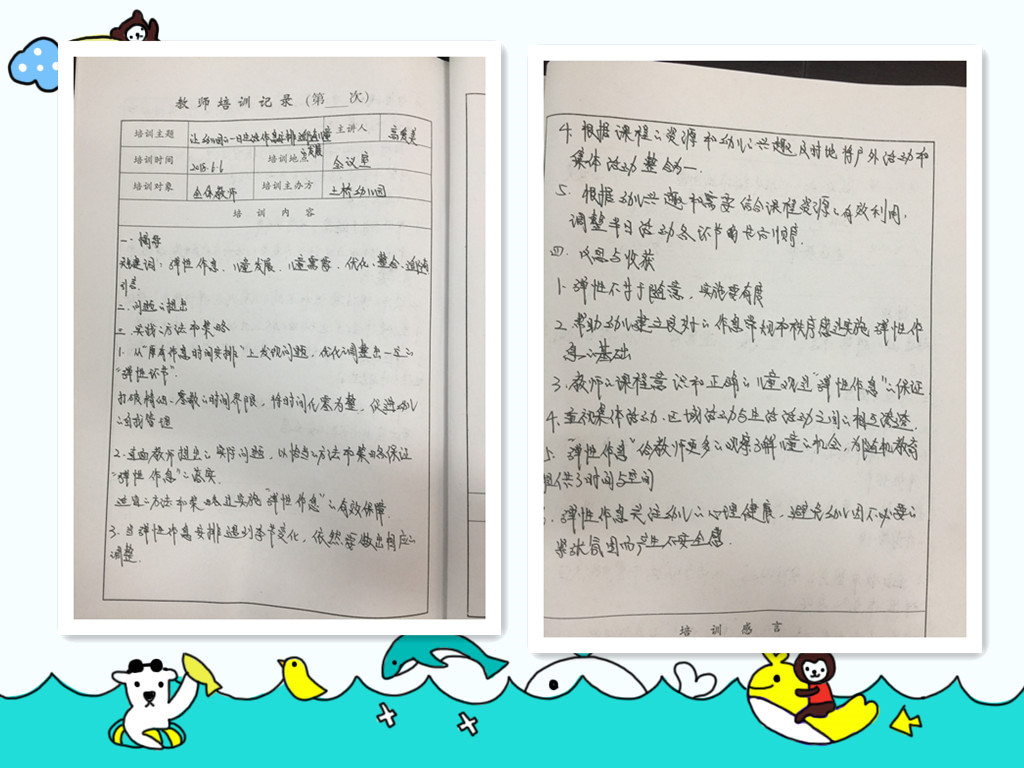 教师培训记录（第___次）
培训主题 让幼儿园一日生活作息安排追随儿童发展 主讲人
培训时间 2018.6.6 培训地点 会议室
培训对象 全体教师 培训主办方 土桥幼儿园
培训内容
一、摘要
关键词：弹性作息、儿童发展、儿童需要、优化、整合、追随
引言
二、问题的提出
三、实践的方法和策略
1. 从"原有作息时间安排"上发现问题，优化调整出一定的
"弹性环节".
打破精细、零散的时间界限，将时间化零为整，促进幼儿
的自我管理
2. 追随教师提出的实际问题，以恰当的方法和策略保证
"弹性作息"的落实.
适宜的方法和策略是实施"弹性作息"的有效保障.
3. 当弹性作息安排遇到季节变化，依然要做出相应的
调整.
4. 根据课程的资源和幼儿的兴趣及时地将户外活动和
集体活动整合为一.
5. 根据幼儿兴趣和需要结合课程资源的有效利用，
调整半日活动各环节的先后顺序
四、反思与收获
1. 弹性不等于随意，实施要有度
2. 帮助幼儿建立良好的作息常规和秩序感是实施弹性作
息的基础
3. 教师的课程意识和正确的儿童观是"弹性作息"的保证
4. 重视集体活动、区域活动与生活活动之间的相互渗透.
5. "弹性作息"给教师更多的观察了解儿童的机会，为随机教育
提供了时间与空间
弹性作息关注幼儿的心理健康，避免幼儿因不必要的
紧张氛围而产生不安全感.
培训感言